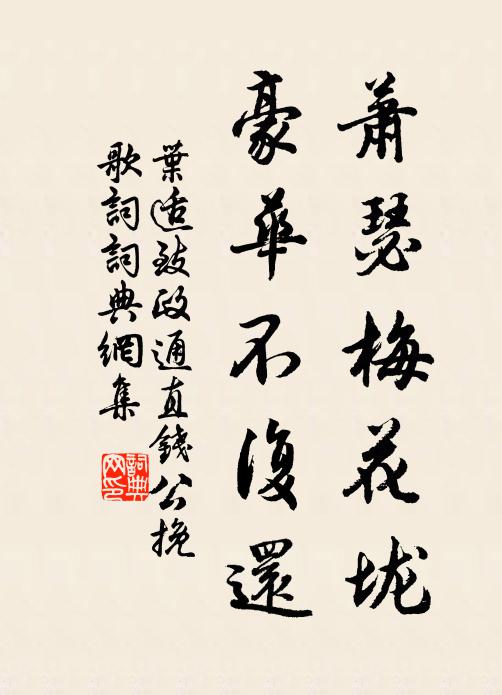 蕭瑟梅花垅
豪華不復還
葉适致政通直錢公挽
歌詞詞典網集
詞典网印